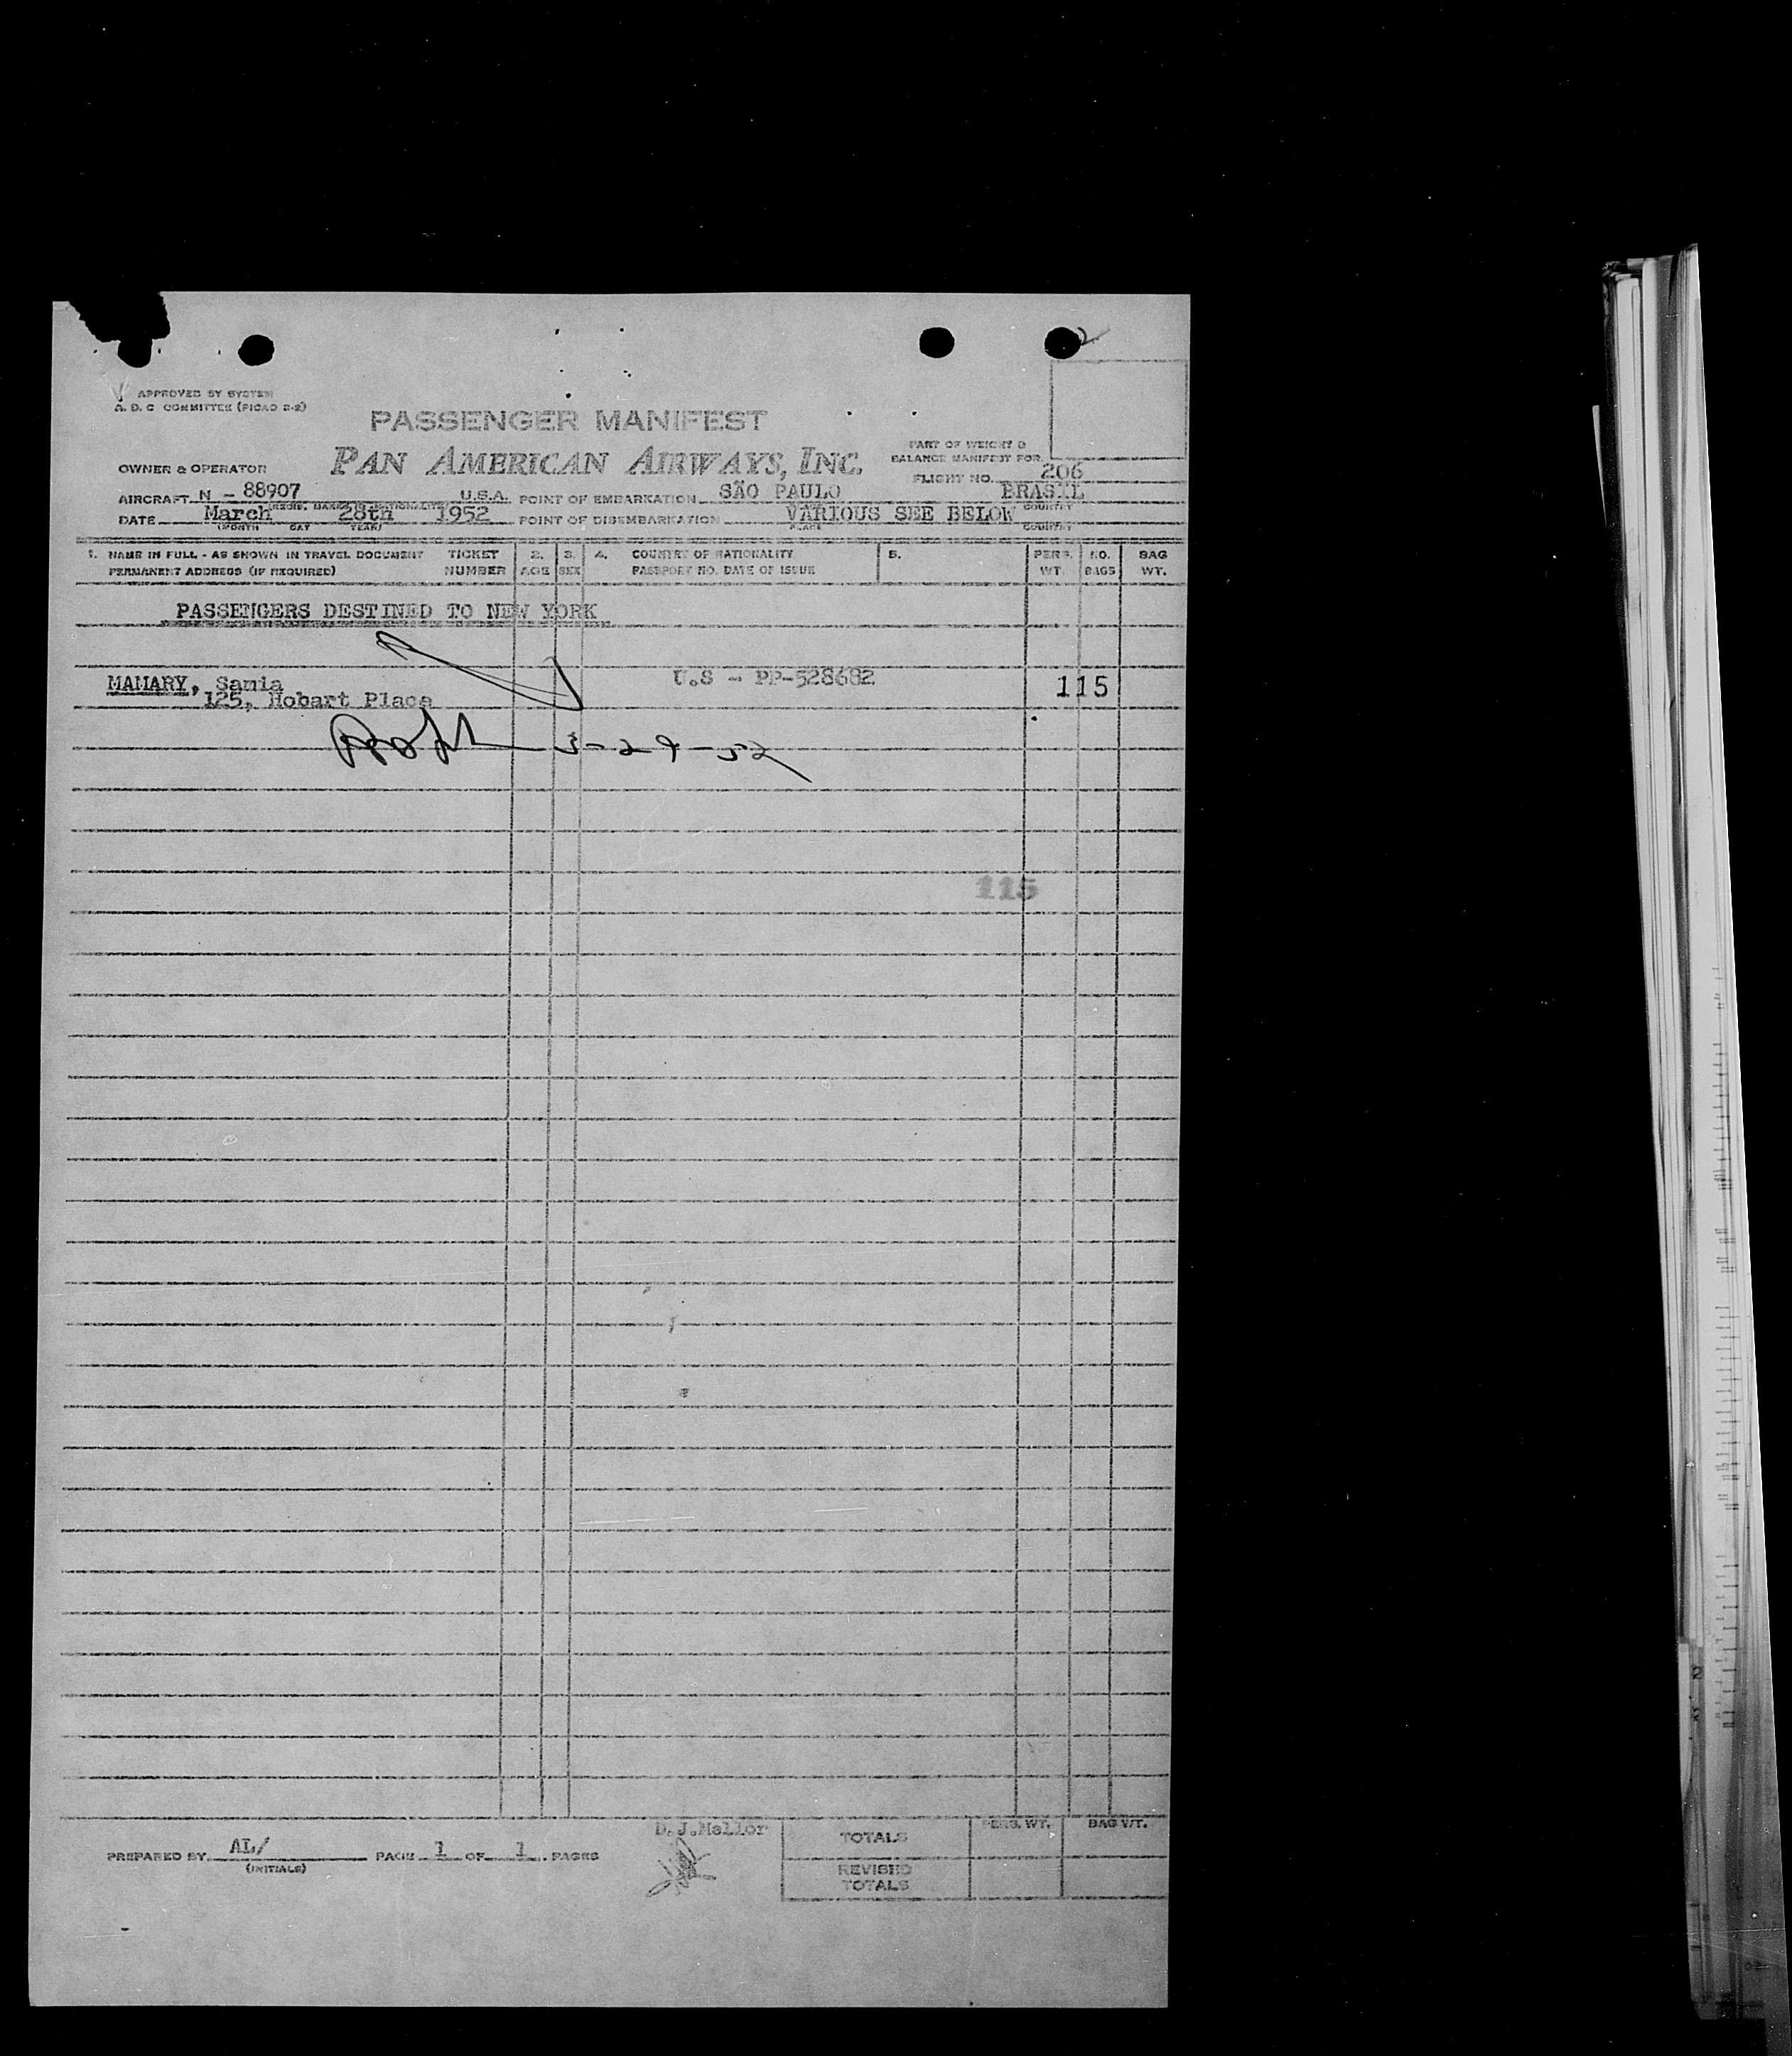 APPROVED BY SYSTEM
A. D. C COMMITTEE (PICAO 2-2)
PASSENGER MANIFEST
PAN AMERICAN AIRWAYS, INC.
PART OF WEIGHT &
BALANCE MANIFEST FOR
OWNER & OPERATOR
FLIGHT NO. 206
AIRCRAFT N - 88907 U.S.A. POINT OF EMBARKATION SÃO PAULO BRASIL
DATE March 28th 1952 POINT OF DISEMBARKATION VARIOUS SEE BELOW COUNTRY
(MONTH DAY YEAR) PLACE COUNTRY
1. NAME IN FULL - AS SHOWN IN TRAVEL DOCUMENT TICKET 2. 3. 4. COUNTRY OF NATIONALITY 5. PERS. NO. BAG
PERMANENT ADDRESS (IF REQUIRED) NUMBER AGE SEX PASSPORT NO. DATE OF ISSUE WT. BAGS WT.
PASSENGERS DESTINED TO NEW YORK
MAMARY, Samia U.S - PP-528682 115
125, Hobart Place
3-29-52
115
D.J.Mallor
PREPARED BY AL/ PAGE 1 OF 1 PAGES
(INITIALS)
TOTALS PERS. WT. BAG WT.
REVISED
TOTALS